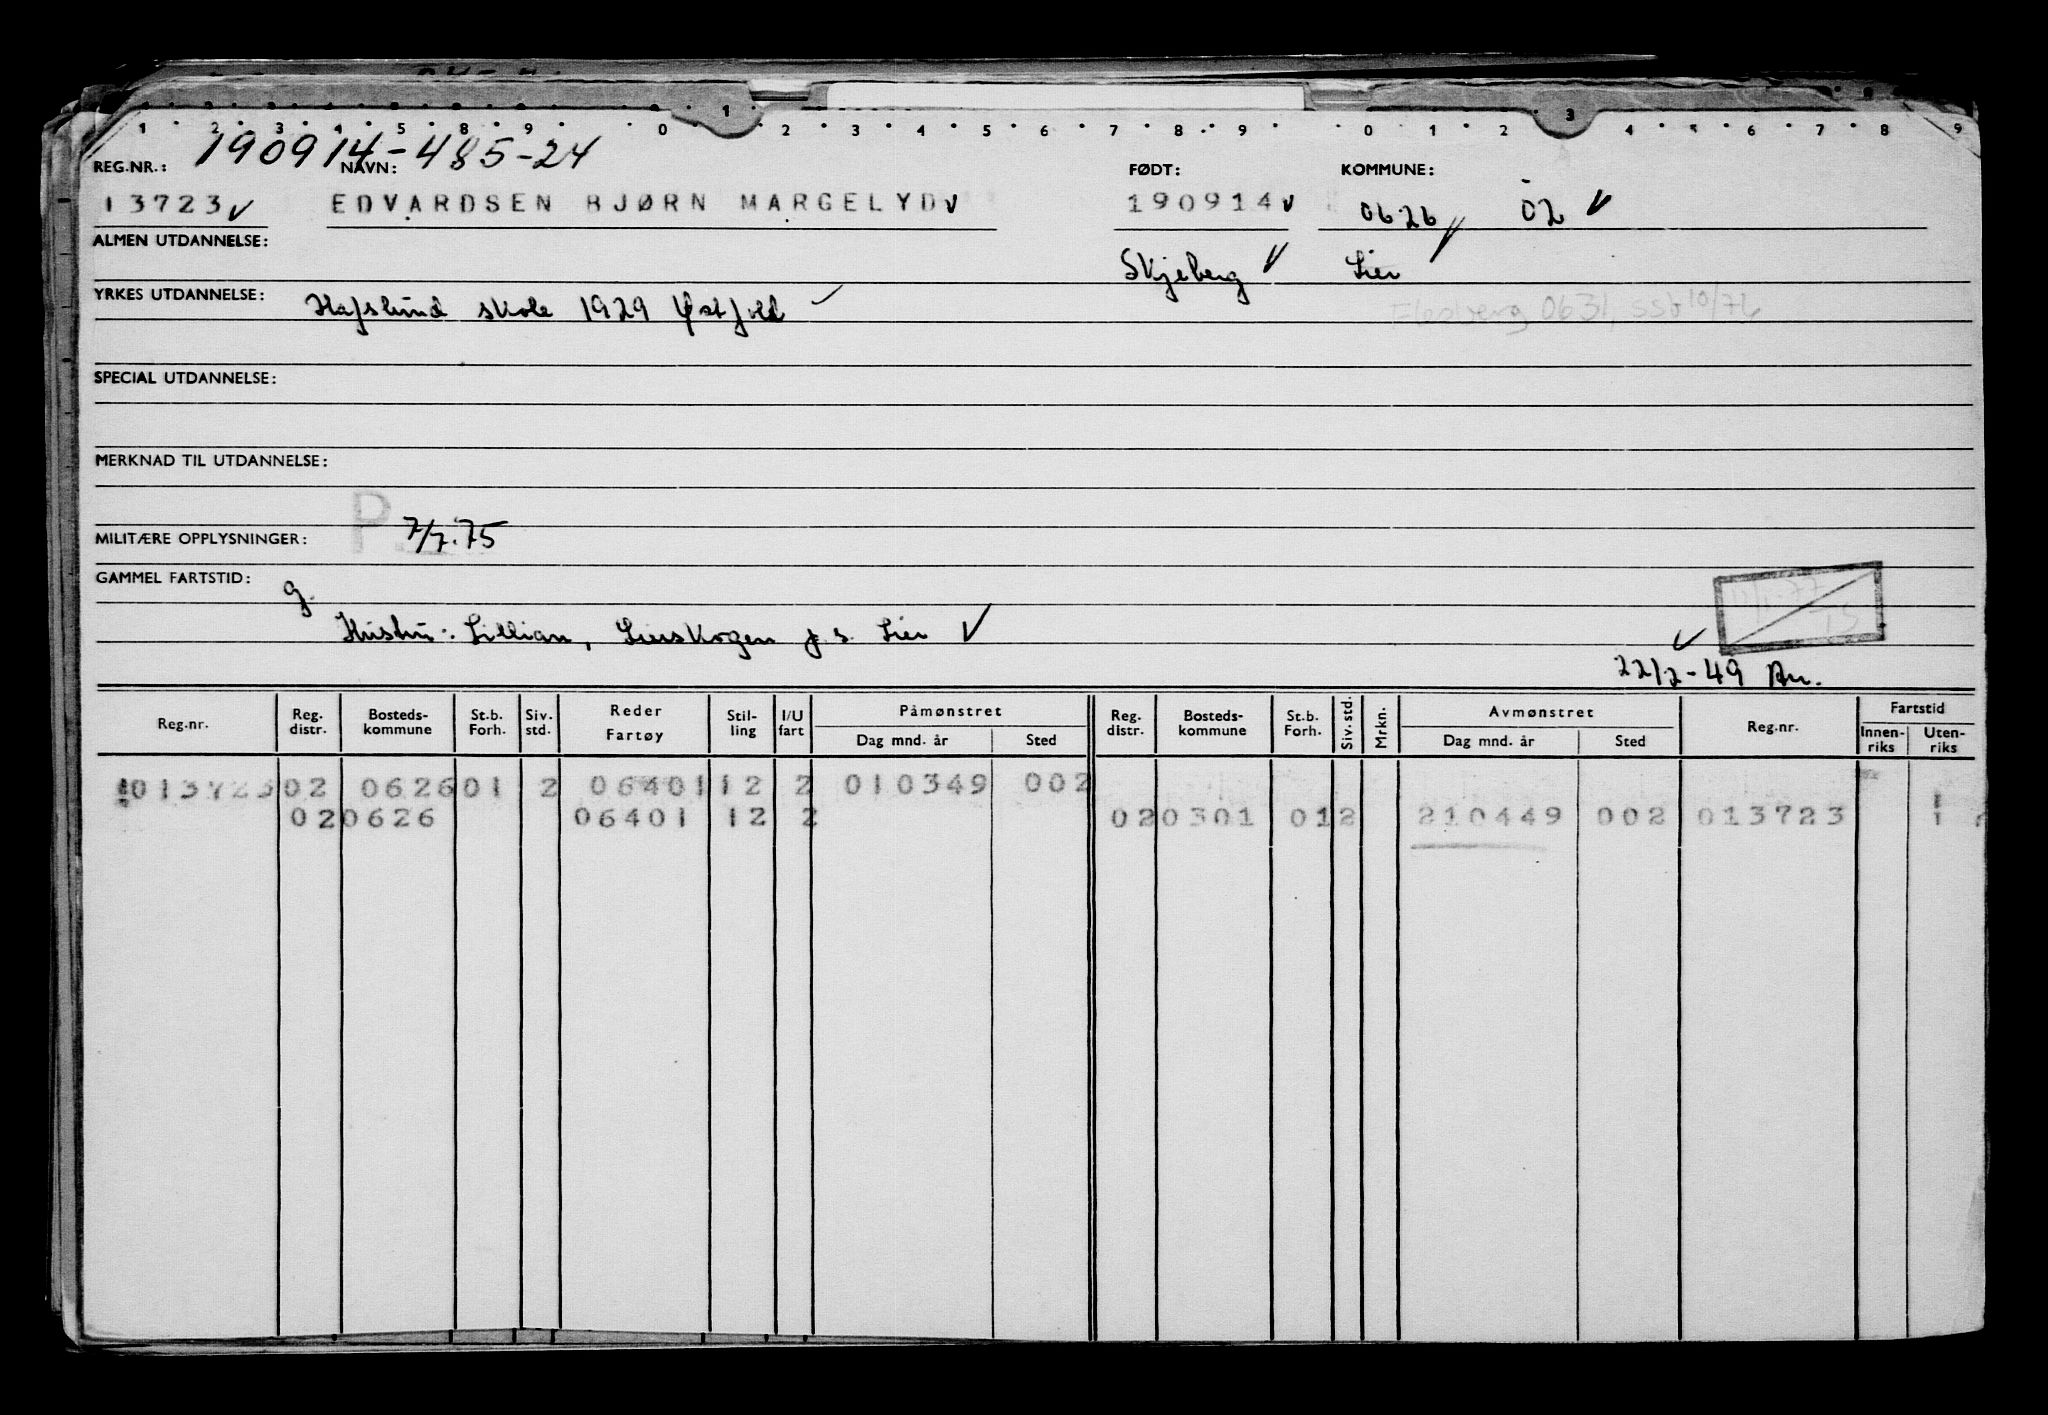 1 2 3 4 5 6 7 8 9 0 1 2 3 4 5 6 7 8 9 0 1 2 3 4 5 6 7 8 9
190914-485-24
REG.NR.: NAVN: FØDT: KOMMUNE:
13723 ✓ EDVARDSEN BJØRN MARGELYD ✓ 190914 ✓ 0626 ✓ 02 ✓
ALMEN UTDANNELSE: Skjeberg ✓ Lier
YRKES UTDANNELSE: Hafslund skole 1929 Østfold ✓ 0631, 10/76
SPECIAL UTDANNELSE:
MERKNAD TIL UTDANNELSE:
MILITÆRE OPPLYSNINGER: P. 7/7.75
GAMMEL FARTSTID: g.
Hustru: Lillian, Lierskogen j.s. Lier ✓
22/2-49
Reg.nr. Reg. distr. Bosteds-kommune St.b. Forh. Siv. std. Reder Fartøy Stil-ling I/U fart Påmønstret Dag mnd. år Sted Reg. distr. Bosteds-kommune St.b. Forh. Siv. std. Mrkn. Avmønstret Dag mnd. år Sted Reg.nr. Fartstid Innen-riks Uten-riks
013723 02 0626 01 2 06401 12 2 010349 002 1
02 0626 06401 12 2 02 0301 01 2 210449 002 013723 1